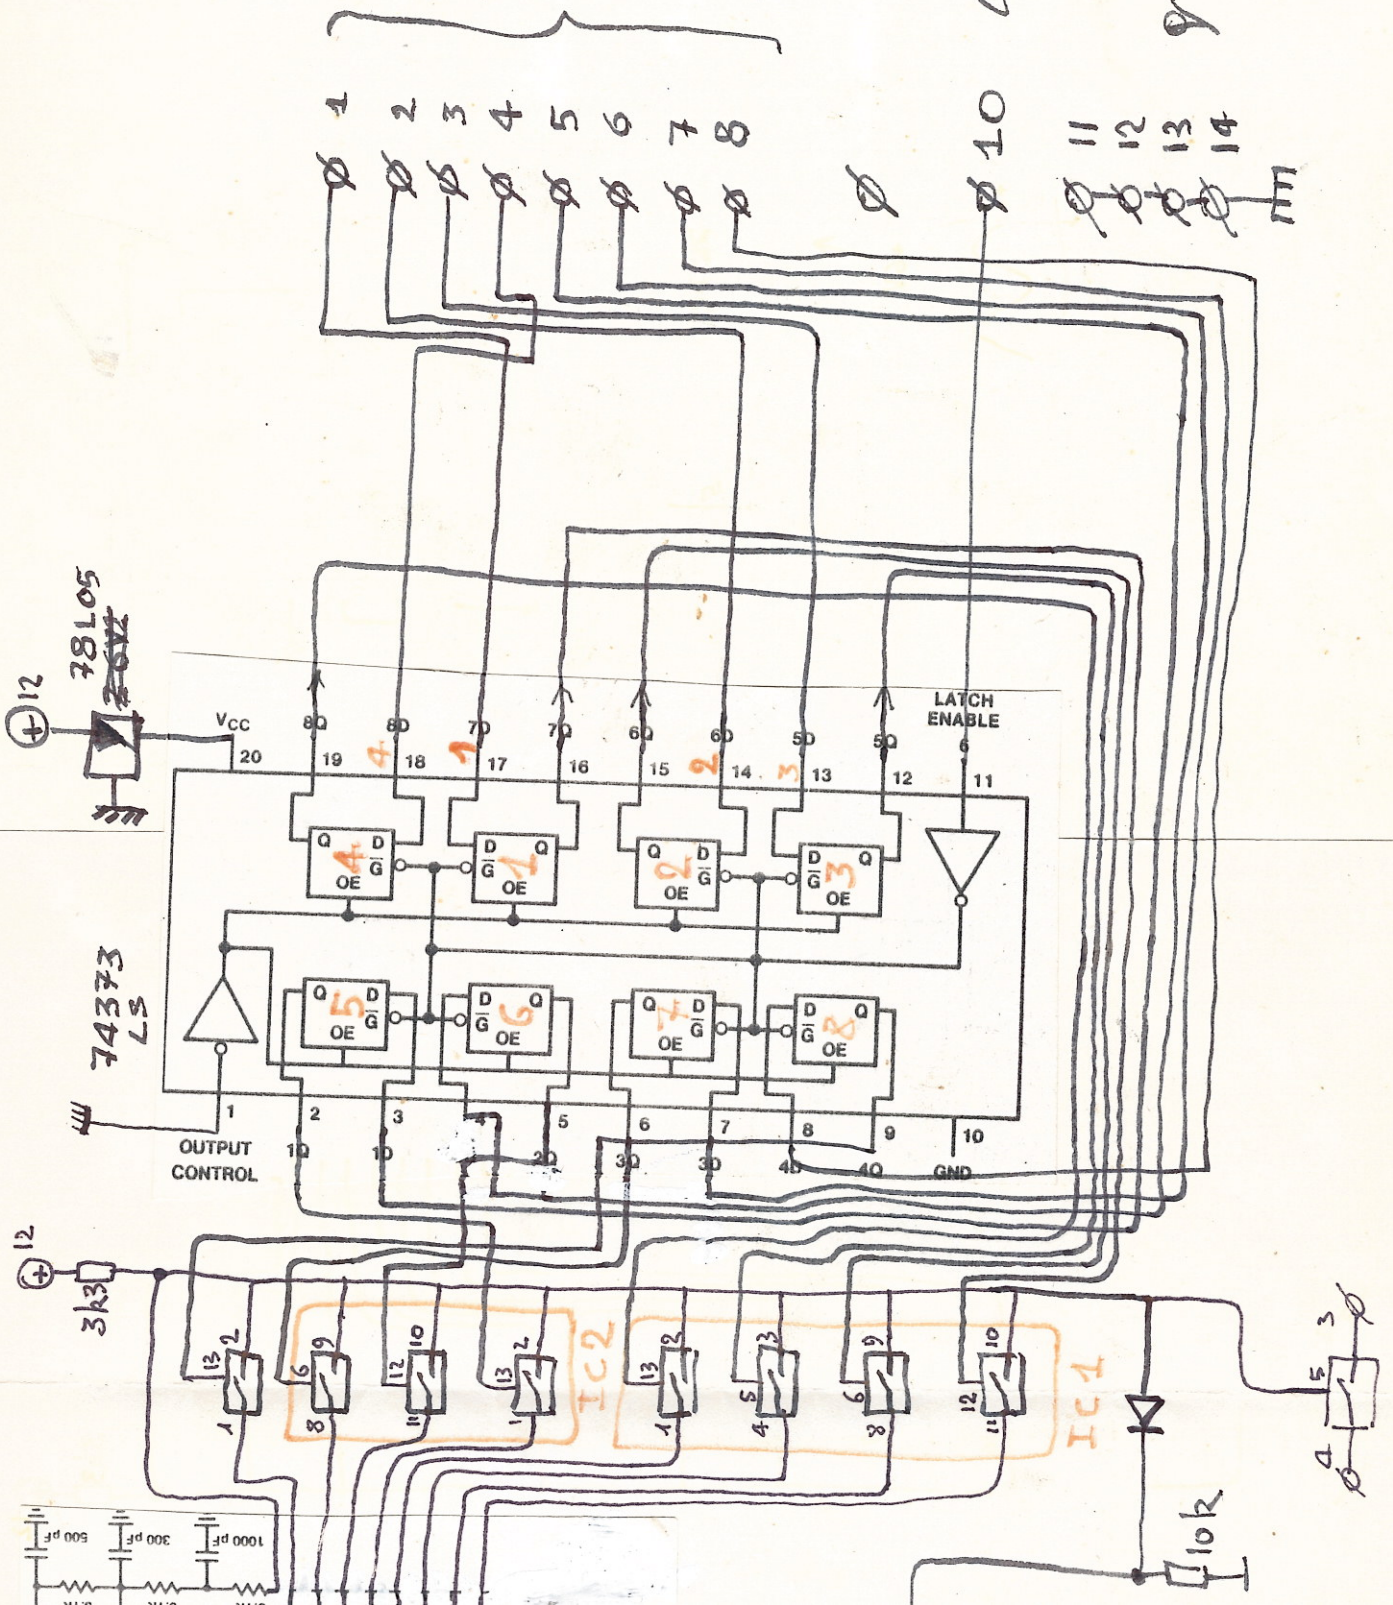 1 2 3 4 5 6 7 8 10 11 12 13 14
12
78L05
VCC
8Q 8D 7D 7Q 6Q 6D 5D 5Q
LATCH
ENABLE
G
20 19 4 18 1 17 16 15 2 14 3 13 12 11
Q D G OE 4
D Q G OE 1
Q D G OE 2
D Q G OE 3
74373
LS
Q D G OE 5
D Q G OE 6
Q D G OE 7
D Q G OE 8
1 2 3 4 5 6 7 8 9 10
OUTPUT
CONTROL
1Q 1D 2Q 3Q 3D 4D 4Q GND
12
3k3
13 2 1
6 9 8
12 10 11
13 2 1
IC2
13 2 1
5 3 4
6 9 8
12 10 11
IC1
3 5 4
500 pF
300 pF
1000 pF
10k